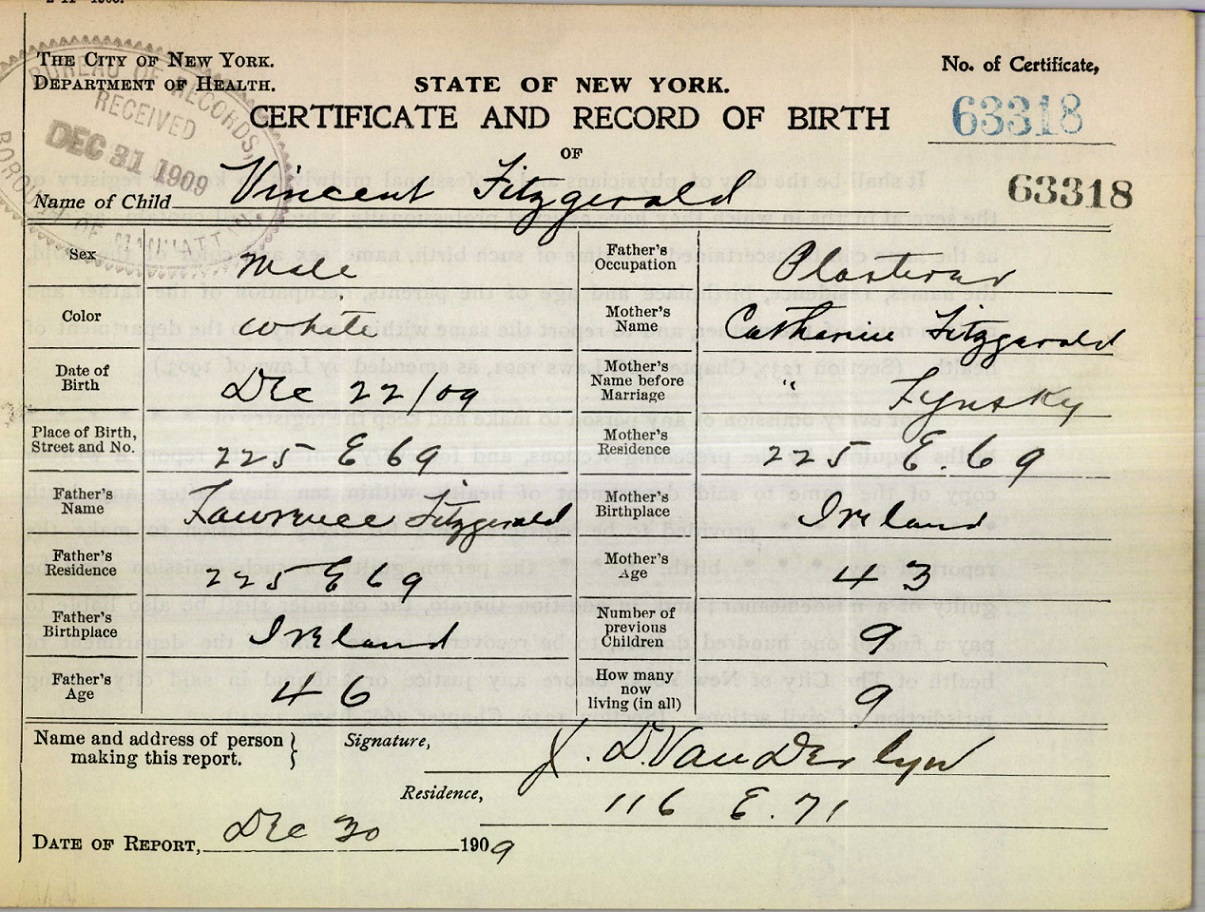 THE CITY OF NEW YORK.
DEPARTMENT OF HEALTH.
No. of Certificate,
STATE OF NEW YORK.
CERTIFICATE AND RECORD OF BIRTH
63318
OF
BUREAU OF RECORDS,
RECEIVED
DEC 31 1909
BOROUGH OF MANHATTAN.
Name of Child Vincent Fitzgerald
63318
Sex Male
Father's Occupation
Color White
Mother's Name Catherine Fitzgerald
Date of Birth Dec 22/09
Mother's Name before Marriage "
Place of Birth, Street and No. 225 E 69
Mother's Residence 225 E. 69
Father's Name Lawrence Fitzgerald
Mother's Birthplace Ireland
Father's Residence 225 E 69
Mother's Age 43
Father's Birthplace Ireland
Number of previous Children 9
Father's Age 46
How many now living (in all) 9
Name and address of person making this report.
Signature, J. D. VanDerlyn
Residence, 116 E. 71
DATE OF REPORT, Dec 30 1909